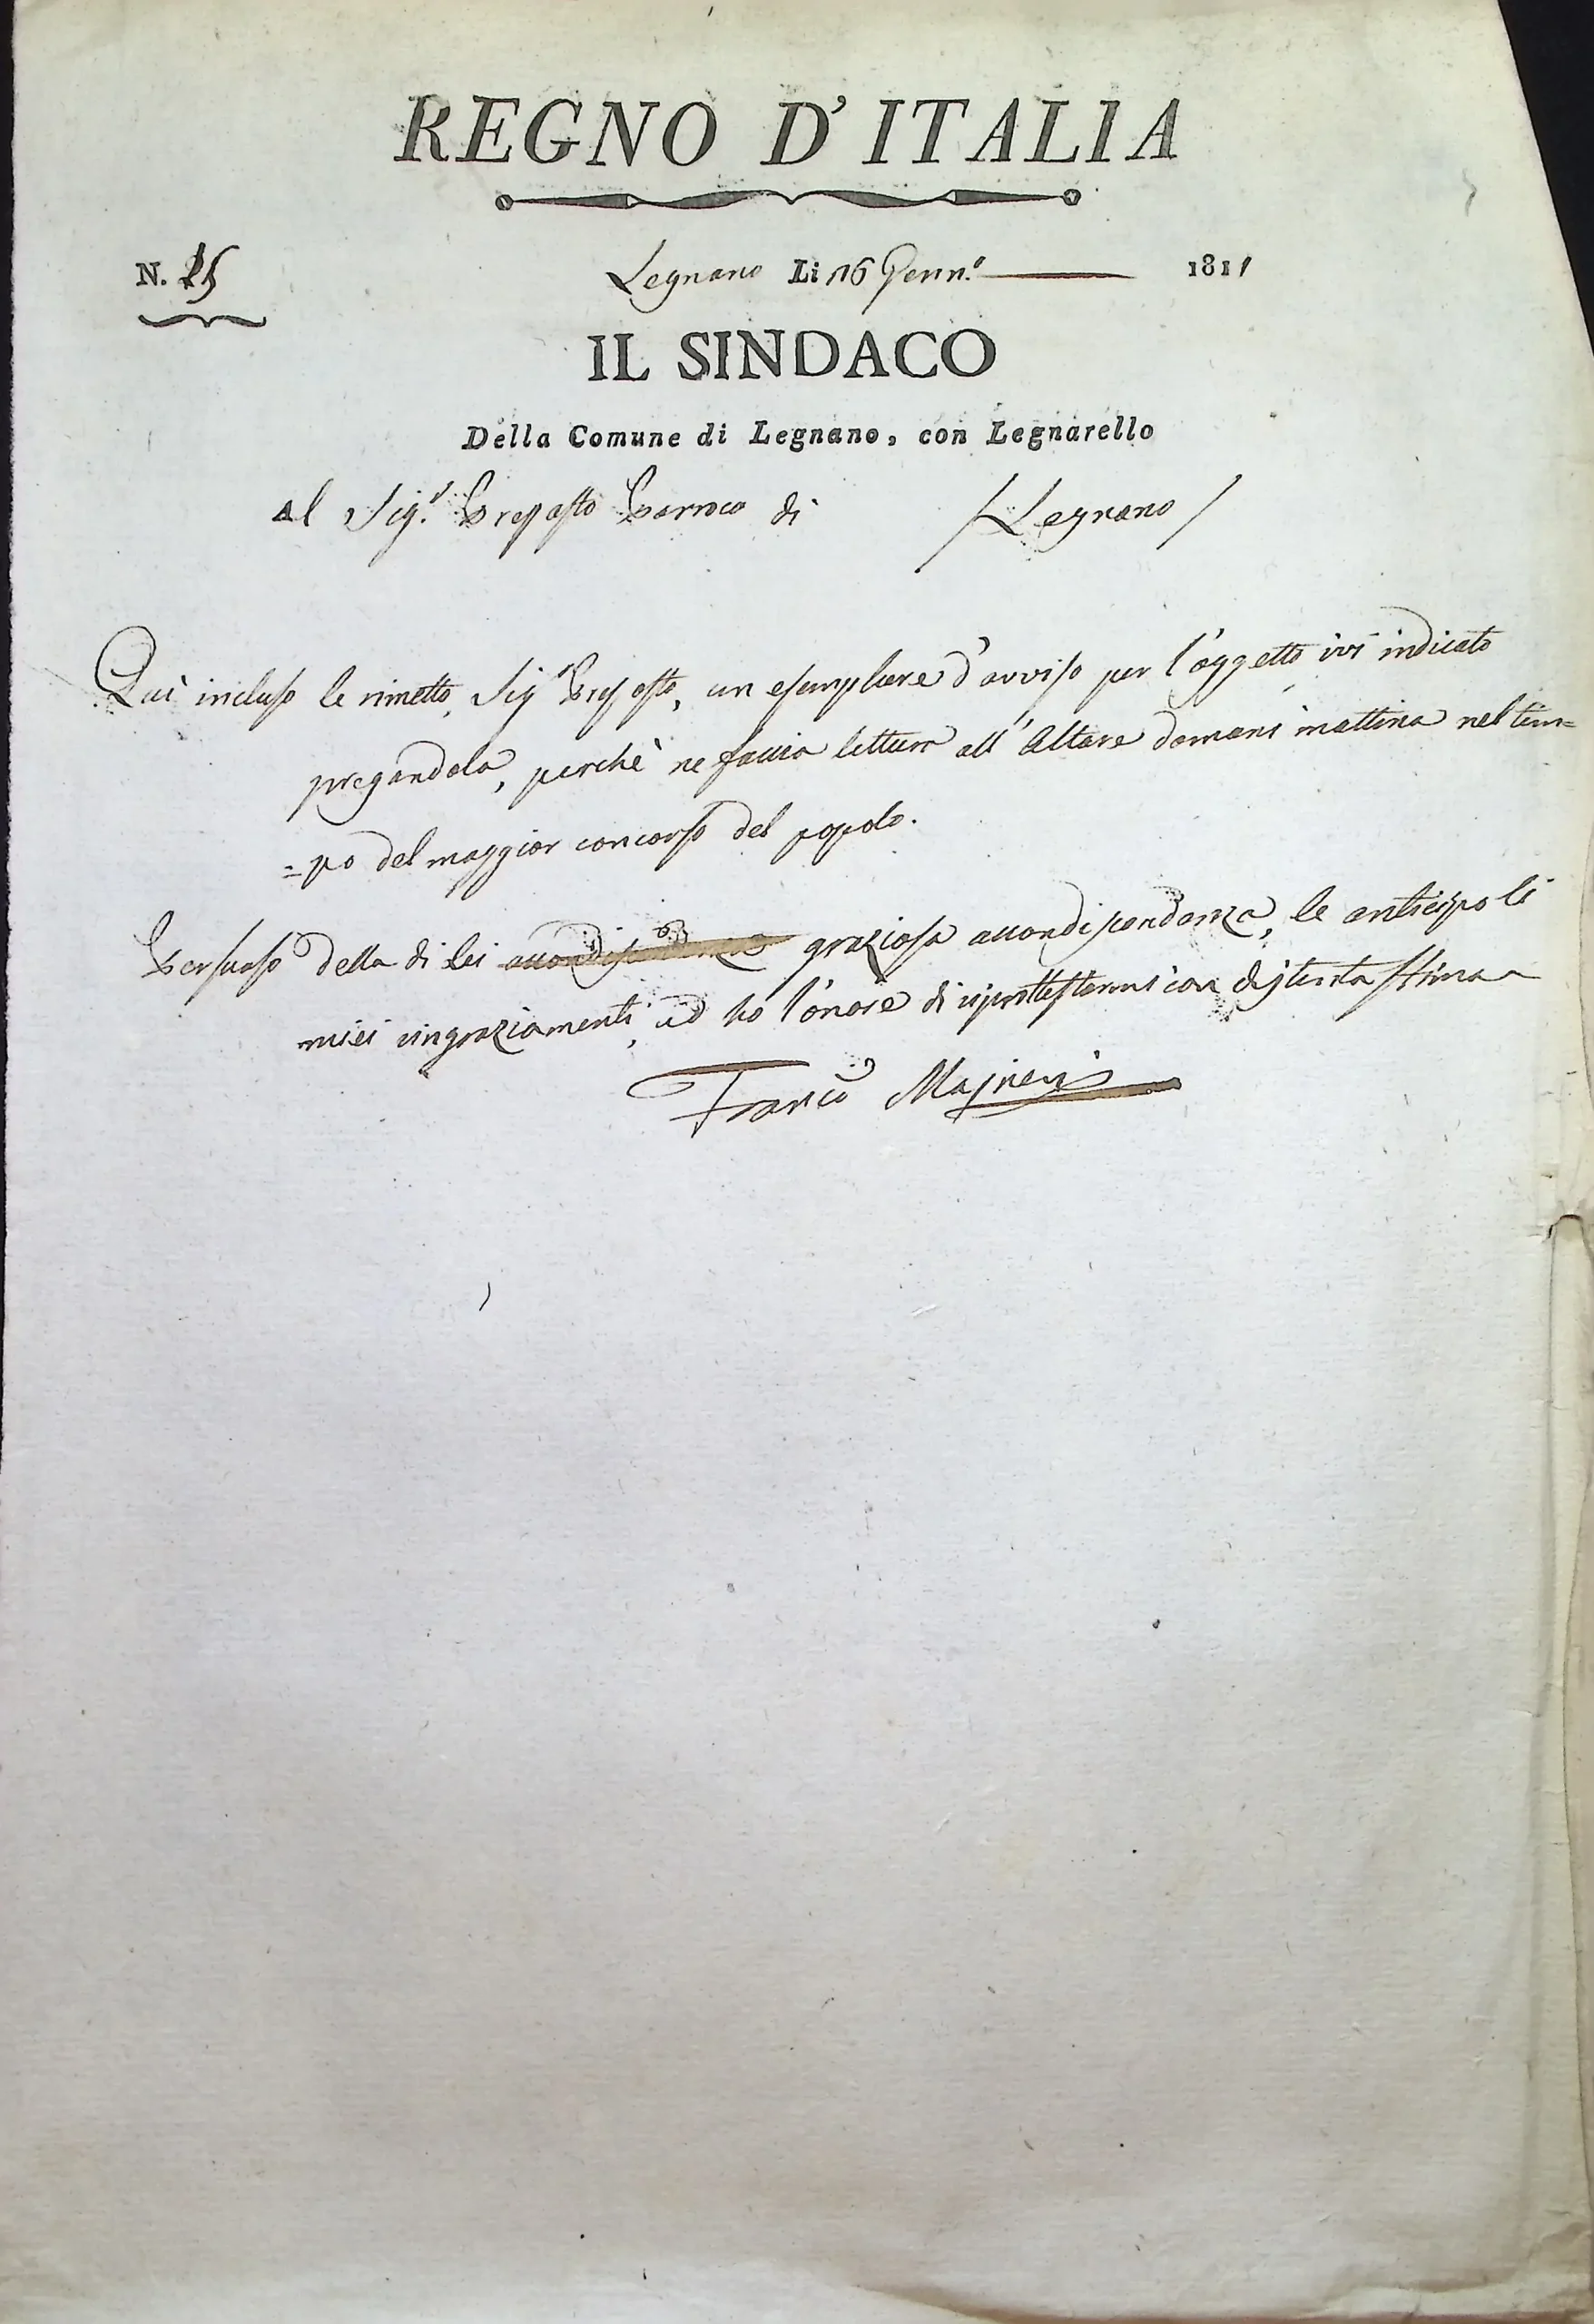 REGNO D'ITALIA
N. 25
Legnano Li 16 Genn.º 1811
IL SINDACO
Della Comune di Legnano, con Legnarello
Al Sig.r Preposto Parroco di /Legnano/
Quì incluso le rimetto, Sig.r Preposto, un esemplare d'avviso per l'oggetto ivi indicato
pregandola, perchè ne faccia lettura all'Altare domani mattina nel tem=
=po del maggior concorso del popolo.
Persuaso della di lei accondiscendenza graziosa accondiscendenza, le anticipo li
miei ringraziamenti, ed ho l'onore di riprottestarmi con distinta stima
Franco